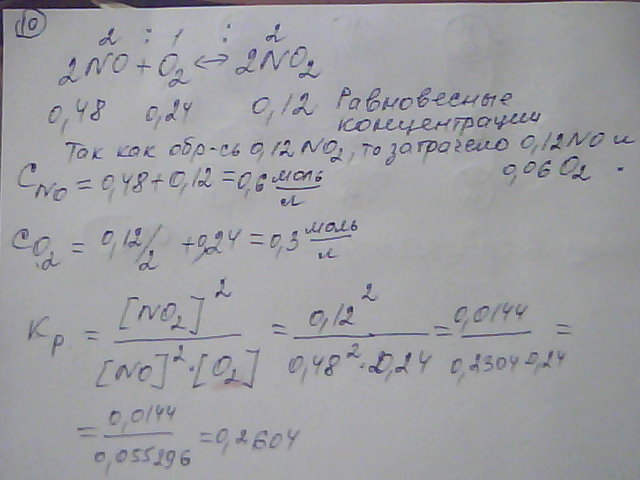 10
2 : 1 : 2
2NO + O₂ ↔ 2NO₂
0,48 0,24 0,12 Равновесные
концентрации
Так как обр-сь 0,12 NO₂, то затрачено 0,12 NO и
0,06 O₂.
C_NO = 0,48 + 0,12 = 0,6 моль/л
C_O₂ = 0,12/2 + 0,24 = 0,3 моль/л
Kр = [NO₂]² / [NO]² · [O₂] = 0,12² / 0,48² · 0,24 = 0,0144 / 0,2304 · 0,24 =
= 0,0144 / 0,055296 = 0,2604